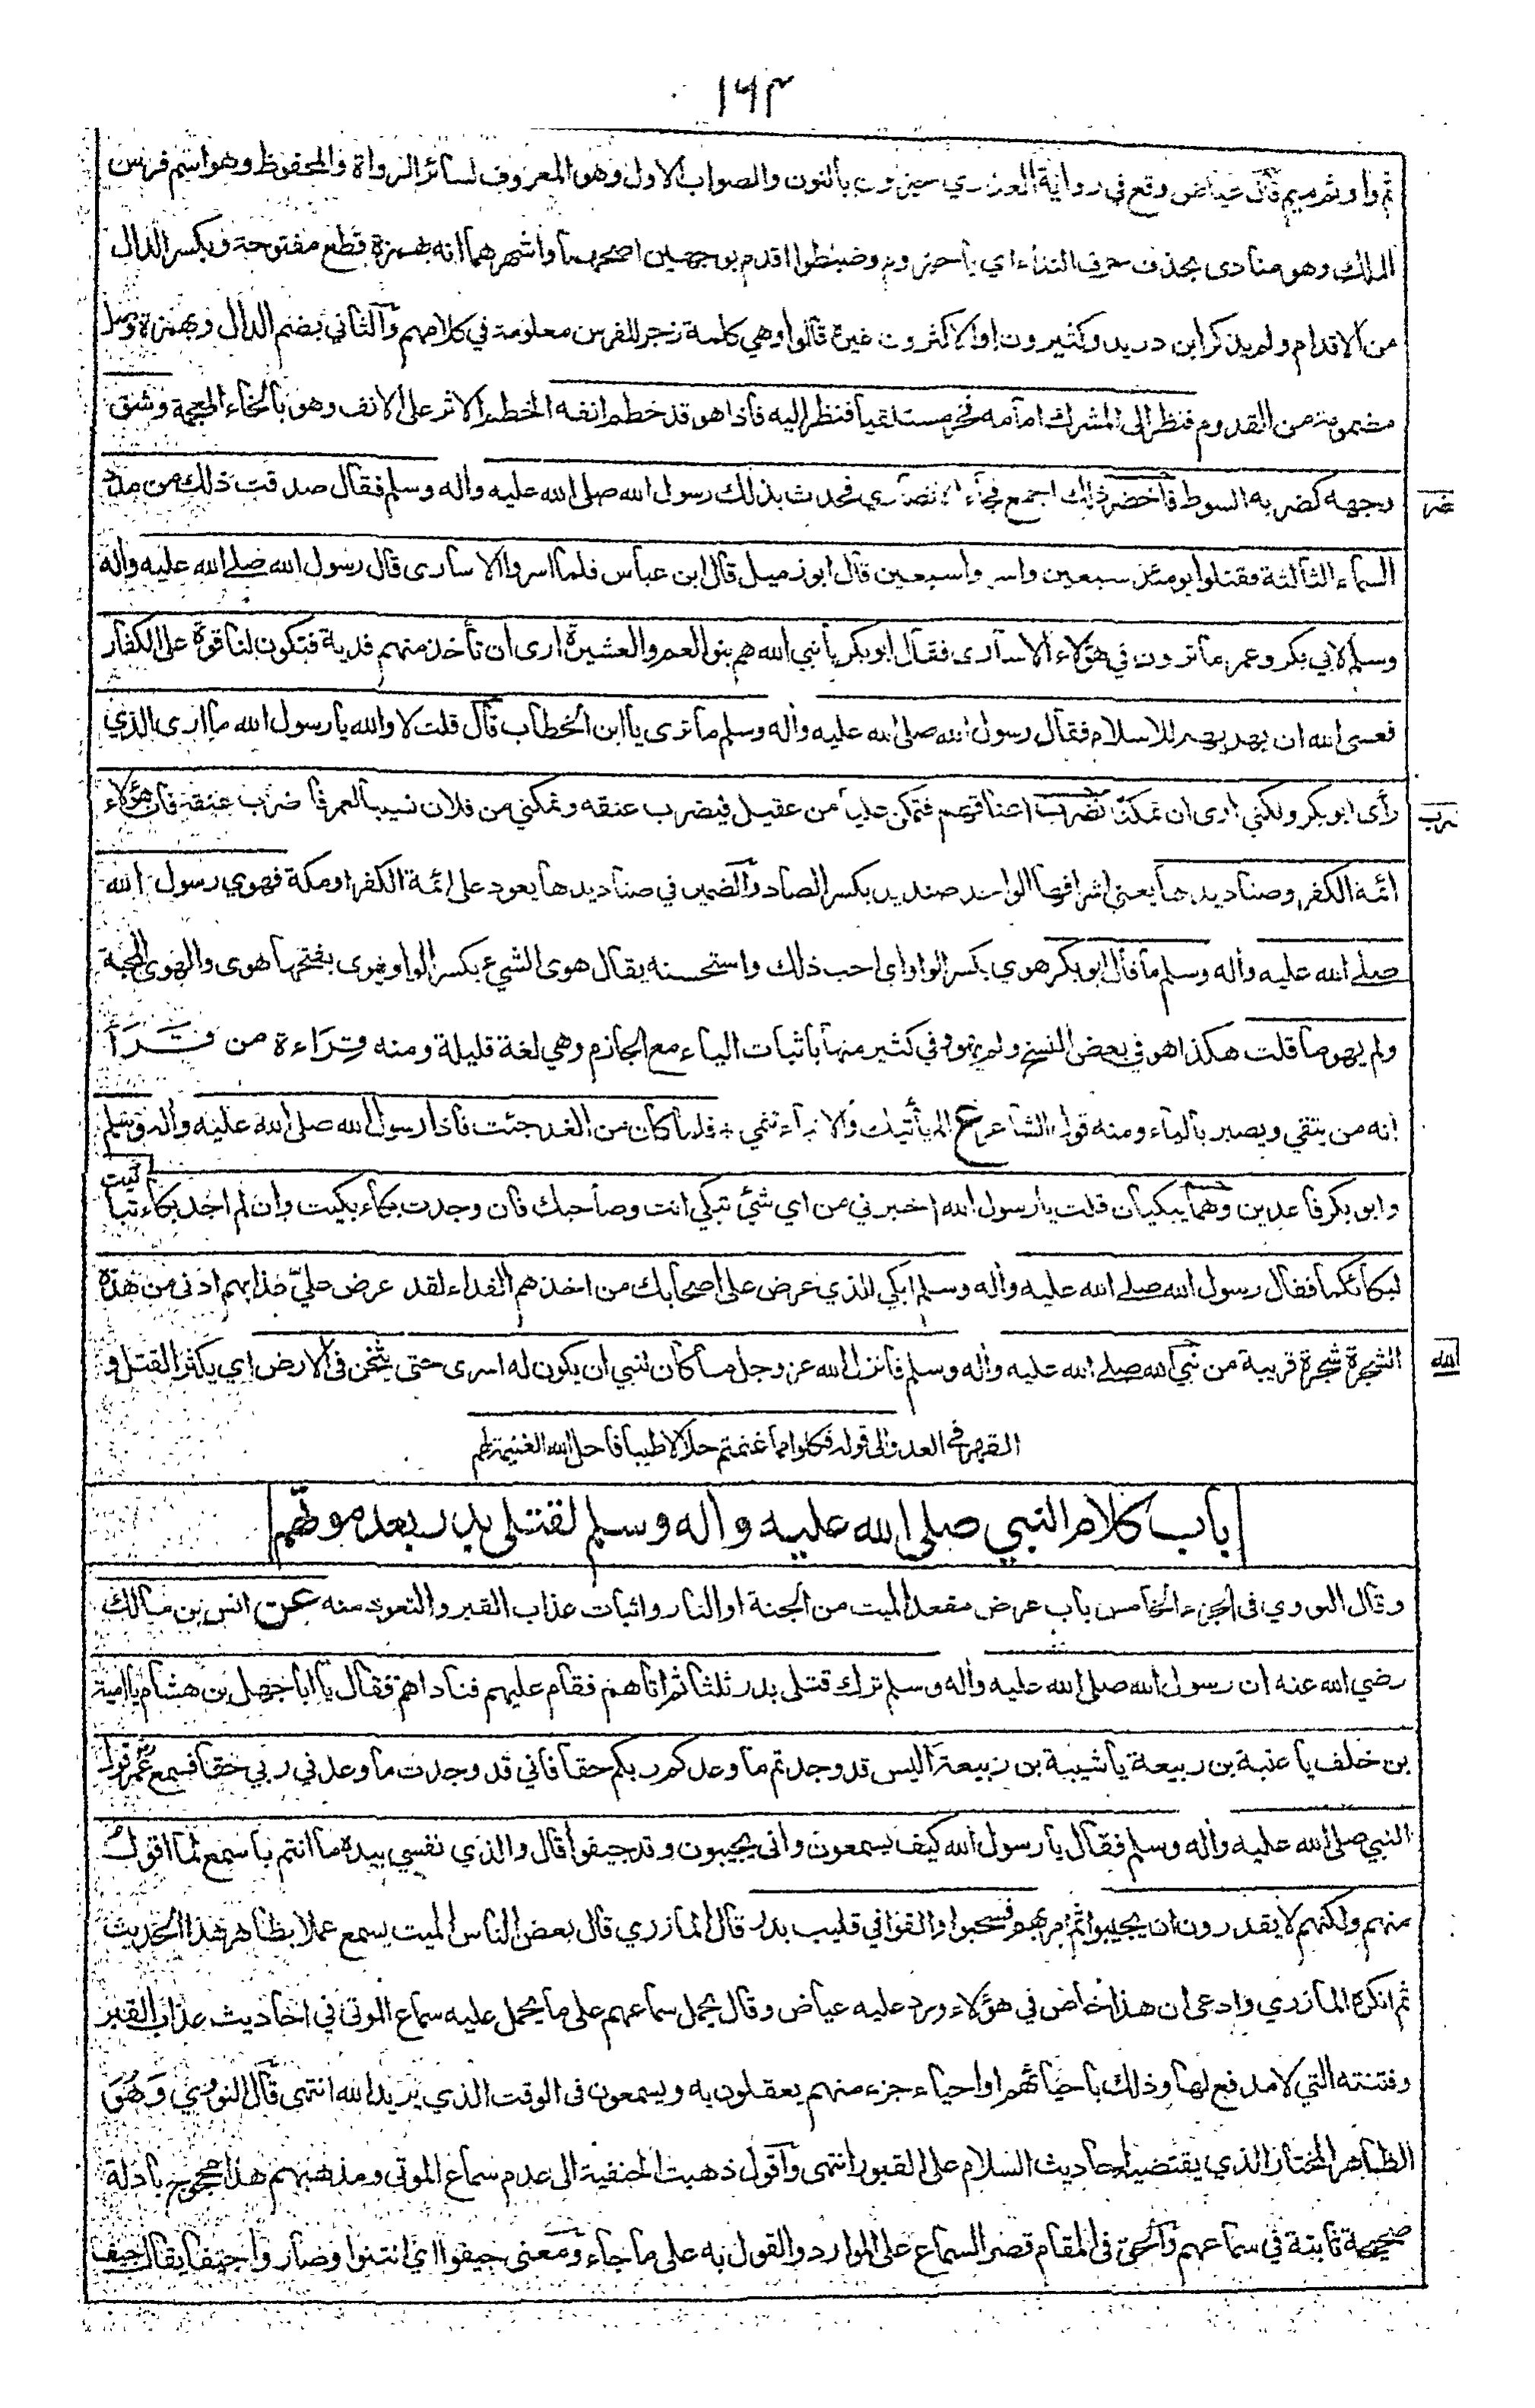 ١٦٣
ثم واو ثم ميم قال عياض وقع في رواية العذري حيزون بالنون والصواب الاول وهو المعروف لسائر الرواة والمحفوظ وهو اسم فرس
الملك وهو منادى بحذف حرف النداء اي يا حيزوم وضبطوا اقدم بوجهين اصحهما واشهرهما انه بهمزة قطع مفتوحة وبكسر الدال
من الاقدام ولم يذكر ابن دريد وكثيرون او الاكثرون غيره قالوا وهي كلمة زجر للفرس معلومة في كلامهم والثاني بضم الدال وبهمزة وصل
مضمومة من القدوم فنظر الى المشرك امامه فخر مستلقيا فنظر اليه فاذا هو قد خطم انفه الخطم الاثر على الانف وهو بالخاء المعجمة وشق
وجهه كضربه السوط فاخضر ذلك اجمع فجاء الانصاري فحدث بذلك رسول الله صلى الله عليه واله وسلم فقال صدقت ذلك من مدد
السماء الثالثة فقتلوا يومئذ سبعين واسروا سبعين قال ابو زميل قال ابن عباس فلما اسروا الاسارى قال رسول الله صلى الله عليه واله
وسلم لابي بكر وعمر ما ترون في هؤلاء الاسارى فقال ابو بكر يا نبي الله هم بنو العم والعشيرة ارى ان تأخذ منهم فدية فتكون لنا قوة على الكفار
فعسى الله ان يهديهم للاسلام فقال رسول الله صلى الله عليه واله وسلم ما ترى يا ابن الخطاب قال قلت لا والله يا رسول الله ما ارى الذي
رأى ابو بكر ولكني ارى ان تمكنا نضرب اعناقهم فتمكن عليا من عقيل فيضرب عنقه وتمكني من فلان نسيبا لعمر فاضرب عنقه فان هؤلاء
ائمة الكفر وصناديدها يعني اشرافها الواحد صنديد بكسر الصاد والضمير في صناديدها يعود على ائمة الكفر او مكة فهوي رسول الله
صلى الله عليه واله وسلم ما قال ابو بكر هوي بكسر الواو اي احب ذلك واستحسنه يقال هوى الشيء بكسر الواو يهوى بفتحها هوى والهوى المحبة
ولم يهو ما قلت هكذا هو في بعض النسخ ولم يهو وفي كثير منها باثبات الياء مع الجازم وهي لغة قليلة ومنه قراءة من قرأ
انه من يتقي ويصبر بالياء ومنه قول الشاعر ع الم يأتيك والانباء تنمي ❊ فلما كان من الغد جئت فاذا رسول الله صلى الله عليه واله وسلم
وابو بكر قاعدين وهما يبكيان قلت يا رسول الله اخبرني من اي شئ تبكي انت وصاحبك فان وجدت بكاء بكيت وان لم اجد بكاء تباكيت
لبكائكما فقال رسول الله صلى الله عليه واله وسلم ابكي للذي عرض على اصحابك من اخذهم الفداء لقد عرض علي عذابهم ادنى من هذه
الشجرة شجرة قريبة من نبي الله صلى الله عليه واله وسلم فانزل الله عز وجل ما كان لنبي ان يكون له اسرى حتى يثخن في الارض اي يكثر القتل و
القهر في العدو الى قوله فكلوا مما غنمتم حلالا طيبا فاحل الله الغنيمة لهم
باب كلام النبي صلى الله عليه واله وسلم لقتلى بدر بعد موتهم
وقال النووي في الجزء الخامس باب عرض مقعد الميت من الجنة او النار واثبات عذاب القبر والتعوذ منه عن انس بن مالك
رضي الله عنه ان رسول الله صلى الله عليه واله وسلم ترك قتلى بدر ثلثا ثم اتاهم فقام عليهم فناداهم فقال يا ابا جهل بن هشام يا امية
بن خلف يا عتبة بن ربيعة يا شيبة بن ربيعة اليس قد وجدتم ما وعدكم ربكم حقا فاني قد وجدت ما وعدني ربي حقا فسمع عمر قول
النبي صلى الله عليه واله وسلم فقال يا رسول الله كيف يسمعون وانى يجيبون وقد جيفوا قال والذي نفسي بيده ما انتم باسمع لما اقول
منهم ولكنهم لا يقدرون ان يجيبوا ثم امر بهم فسحبوا والقوا في قليب بدر قال المازري قال بعض الناس الميت يسمع عملا بظاهر هذا الحديث
ثم انكره المازري وادعى ان هذا خاص في هؤلاء ورد عليه عياض وقال يحمل سماعهم على ما يحمل عليه سماع الموتى في احاديث عذاب القبر
وفتنته التي لا مدفع لها وذلك باحيائهم او احياء جزء منهم يعقلون به ويسمعون في الوقت الذي يريد الله انتهى قال النووي وهو
الظاهر المختار الذي يقتضيه احاديث السلام على القبور انتهى واقول ذهبت الحنفية الى عدم سماع الموتى ومذهبهم هذا محجوج بادلة
صحيحة ثابتة في سماعهم والحق في المقام قصر السماع على الموارد والقول به على ما جاء ومعنى جيفوا اي انتنوا وصاروا جيفا يقال جيف